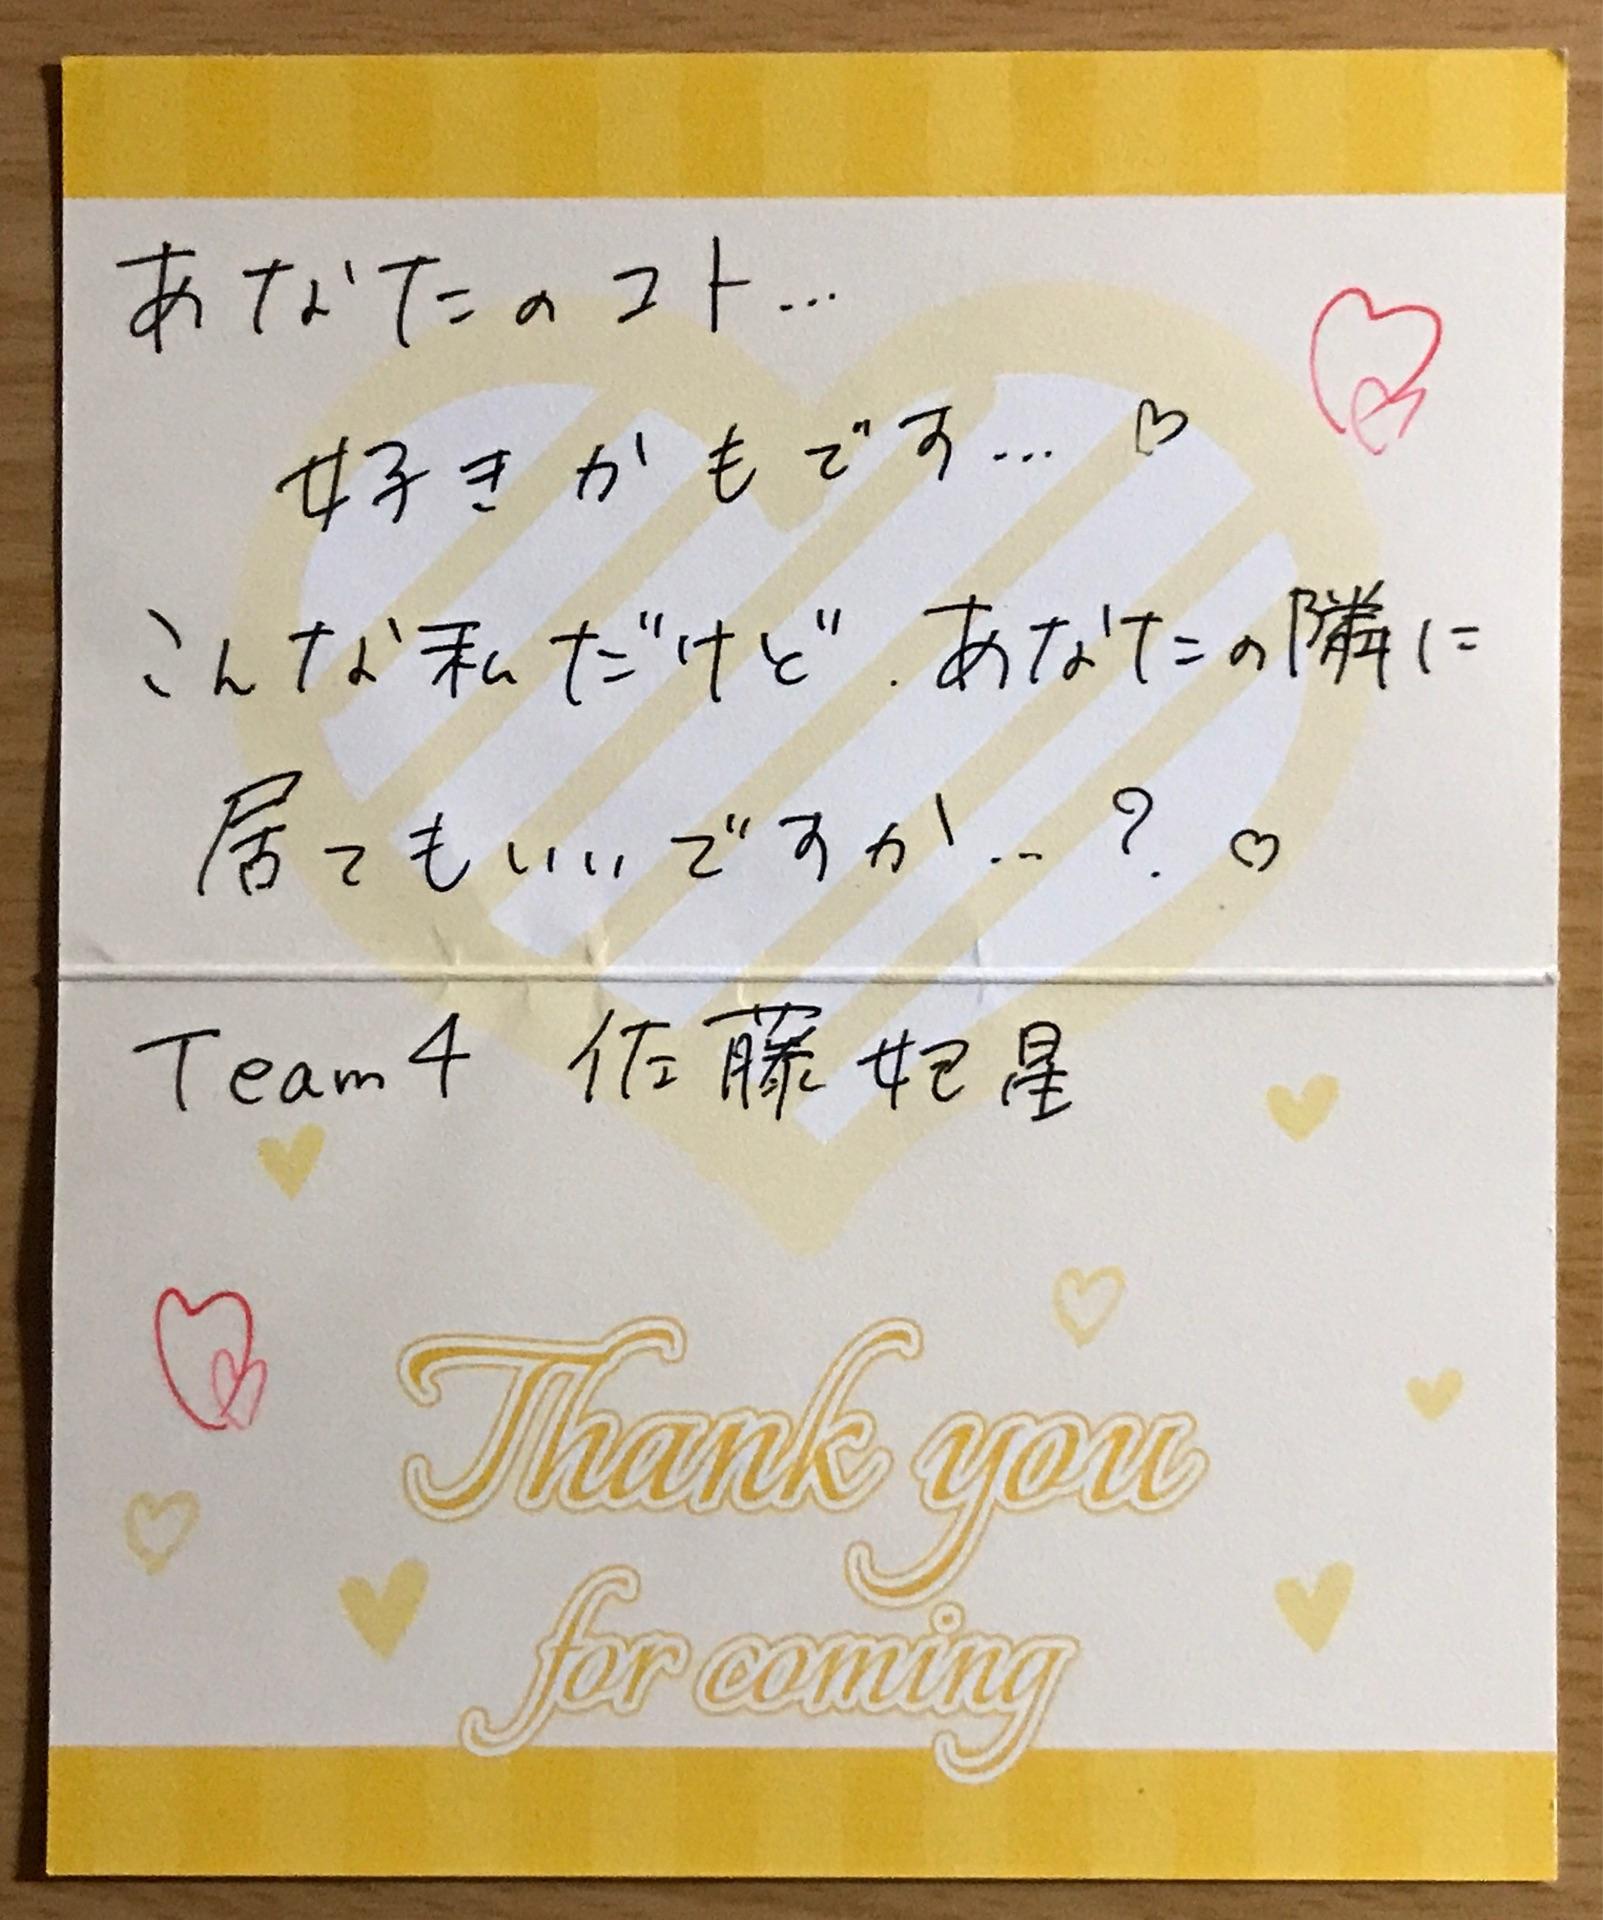 あなたのコト...
好きかもです...♡
こんな私だけど、あなたの隣に
居てもいいですか...?♡
Team4 佐藤妃星
Thank you
for coming